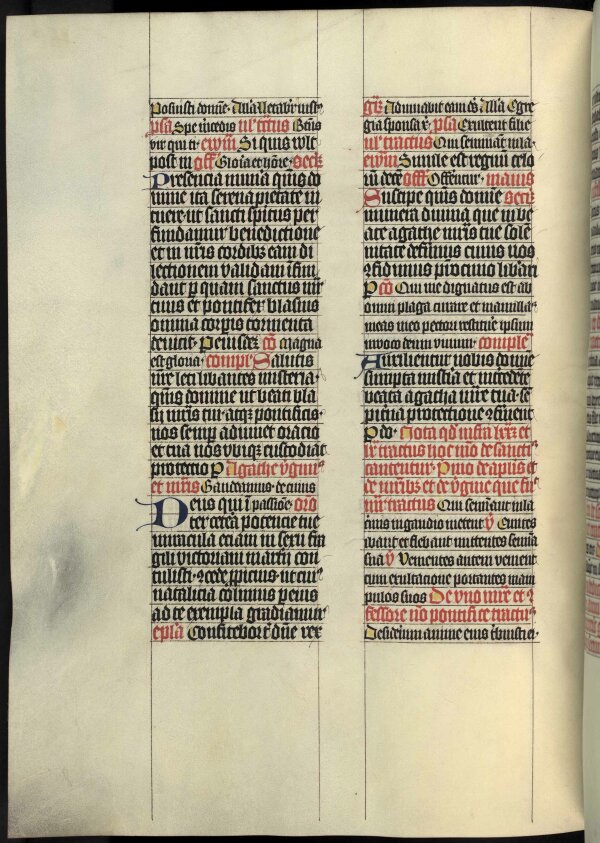 Posuisti domine. Alla Letabit iust9
psa Spe mcedis uł tctus Btus
vir qui ti. ewm Si quis vult
post m off Gloia et hõre. Secr
Presencia munera quis do
mine ita serena pietate in
tuere ut sancti spiritus per
fundantur benedictione
et in nris cordibz eam di
lectionem validam ifun
dant p quam sanctus mr
tirus et pontifex blasius
omnia corpis tormenta
deuicit. Per eiusdez co Magna
est gloria. comple Salutis
nre leti libantes misteria.
quis domine ut beati bla
sij mris tui. atqz pontificis.
nos semp adiuuet oracio
et tua nos vbiqz custodiat
protectio P Agathe vginis
et mris Gaudeamus. de cuius
Deus qui i passiõe. oro
ter cetera potencie tue
miracula eciam in sexu fra
gili victoriam martirij con
tulisti. ɀcede ppicius. ut cui9
natalicia colimus. per eius
ad te exempla gradiamur
epla Confitebor t dne rex
gr Adiuuabit eam ds Alla Egre
gia sponsa x psa Exulcent filie
uł tractus Qui seminant in la.
ewm Simile est regnum celo
rum dece off Offerentur. maius
Suscipe quis domine secr
munera dignanter que in be
ate agathe mris tue solen
nitate deferimus cuius nos
ɀfidimus pcinio liberari
P co Qui me dignatus est ab
omni plaga curare et mamillam
meam meo pectori restituere ipsum
inuoco deum viuum. comple
Auxilientur nobis domine
sumpta misteria et intercedente
beata agatha mre tua. sem
piterna protectione ɀfirment
P do. Nota qd infra lxx et
xl tractus hoc modo de sanctis
cantentur. Primo de aplis et
de mribz et de vgine que fu
mr tractus Qui seminant in la
crimis in gaudio metent v Euntes
ibant et flebant mittentes semina
sua v Venientes autem venient
cum exultacione portantes mani
pulos suos De vno mre et ɀ
fessore no pontifice tractus
Desiderium anime eius tbuisti ei.